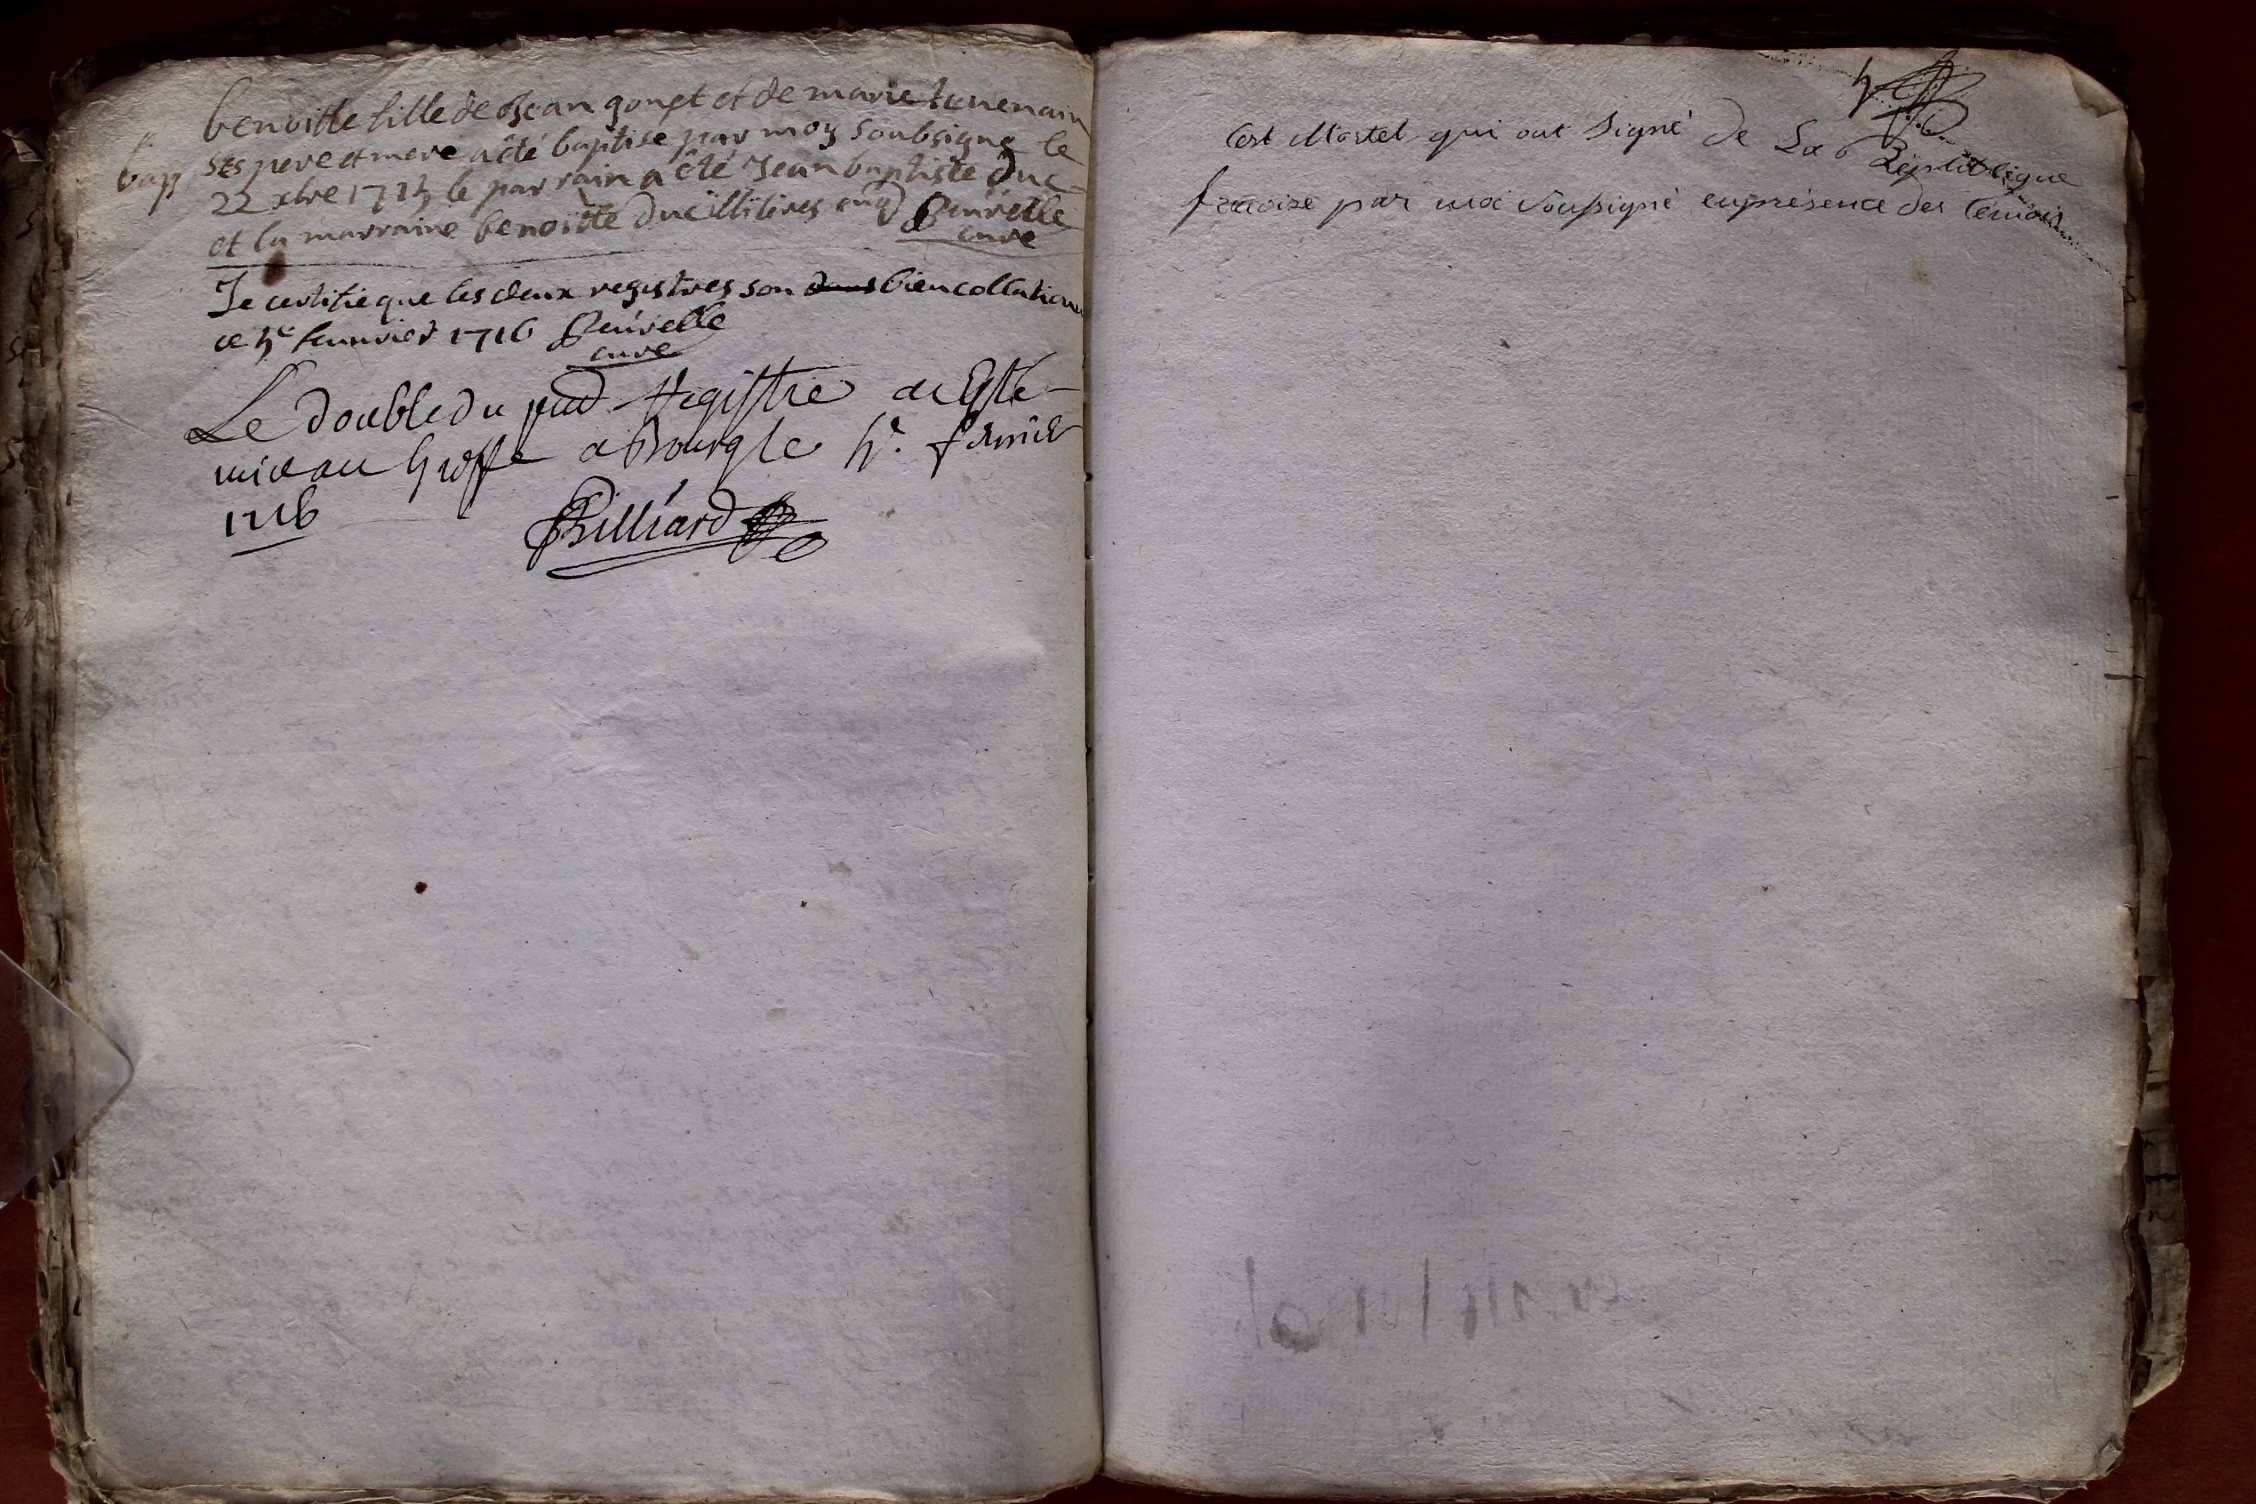 bap
benoitte fille de Jean gonet et de marie
ses pere et mere a été baptise par moy soubsigne le
22 xbre 1715 le parrain a été Jean baptiste duc
et la marraine benoitte
cure
Je certifie que les deux registres son bien collation
ce 5e feuvrier 1716
cure
Le double du pnd Registre a Esté
mis au Greffe a Bourg le 5e. février
1716
Billiard
5
Cest Martel qui ont signé de La Republique
francoise par moi Soussigné en présence des témoins